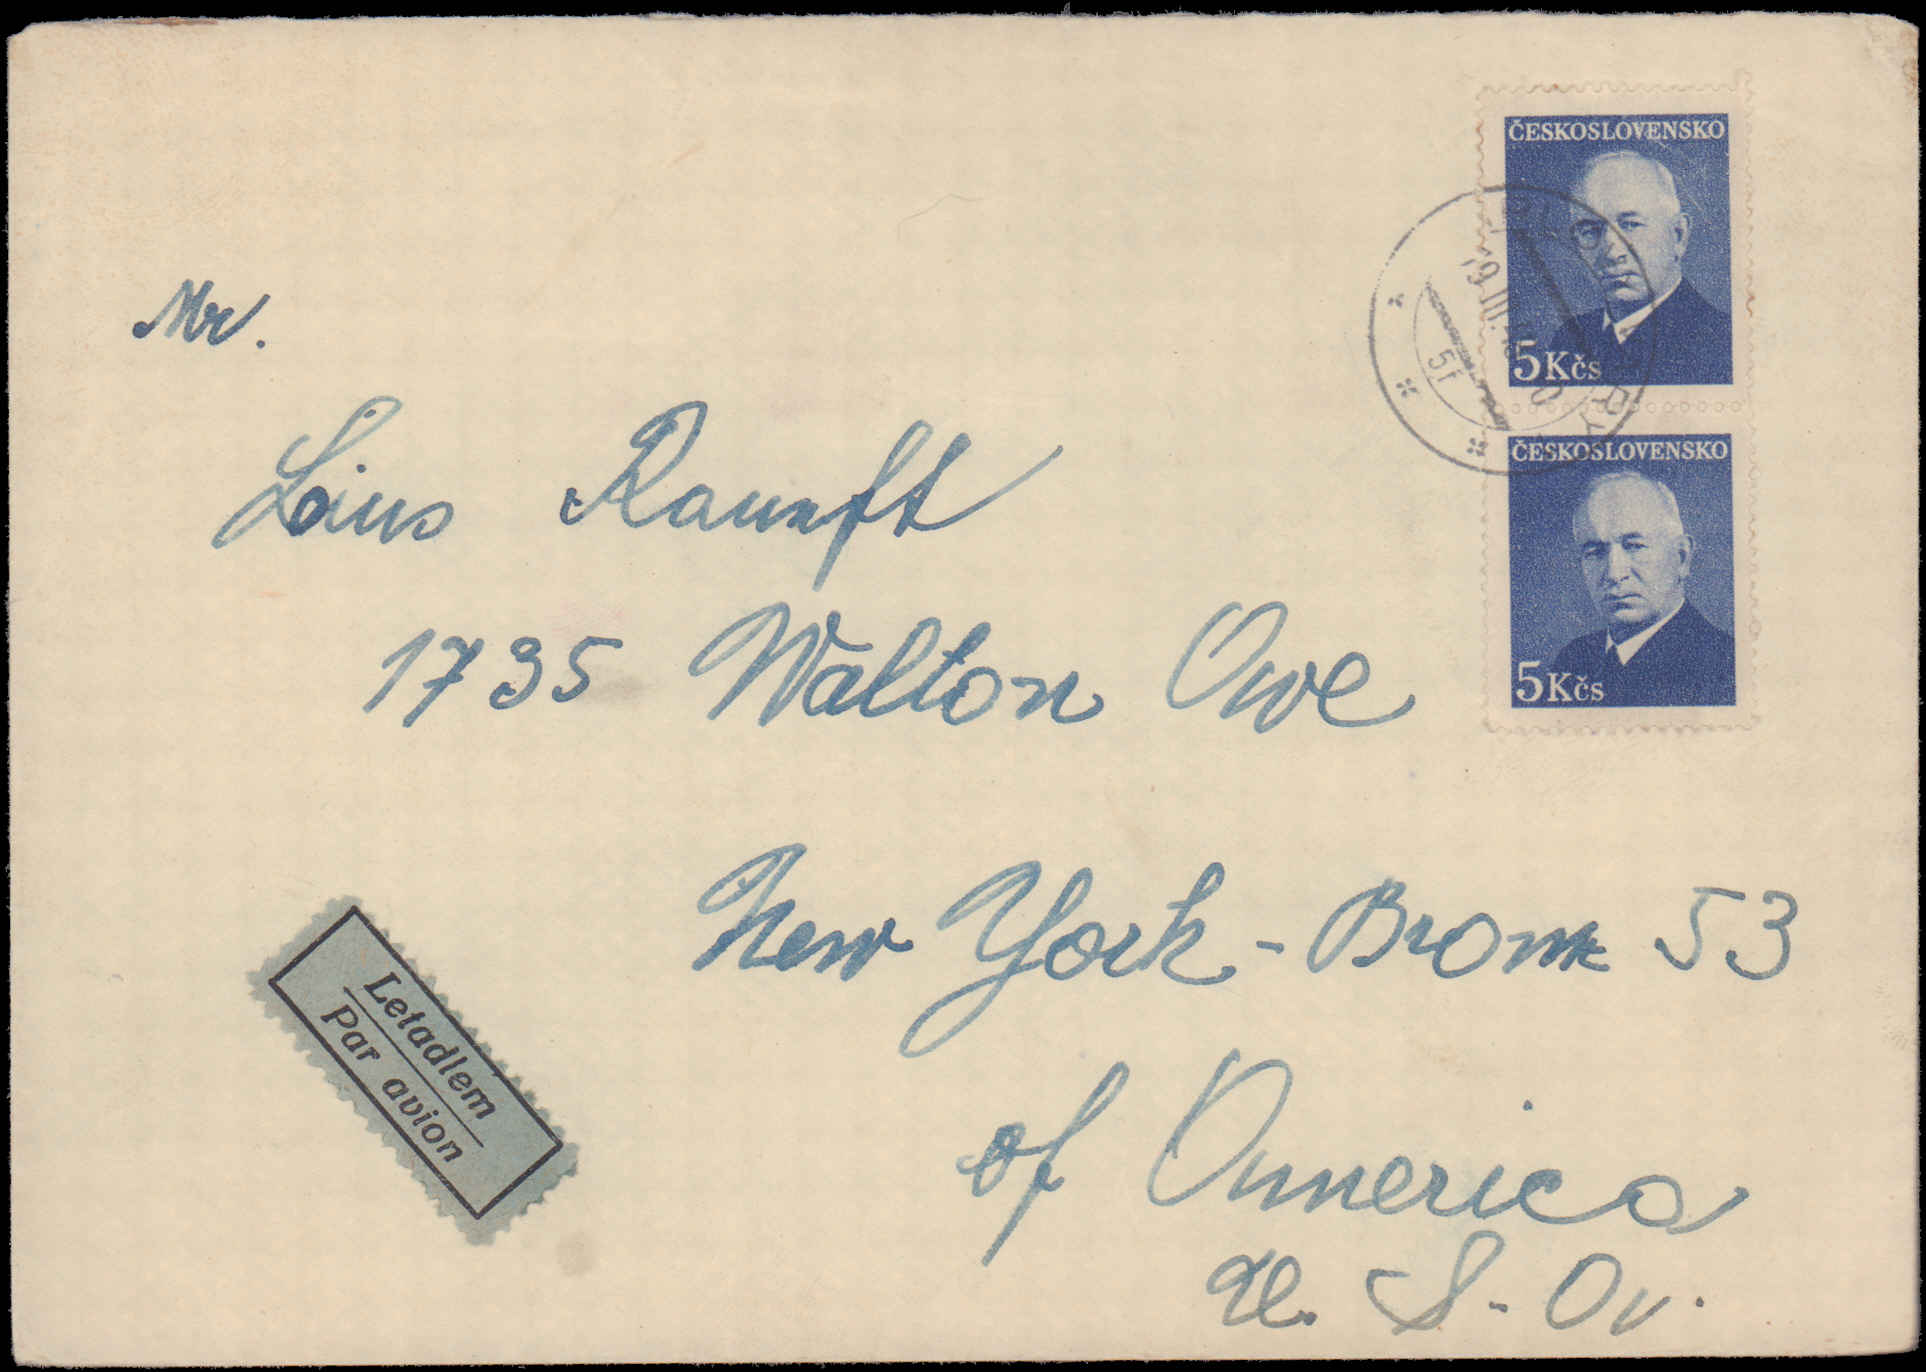 ČESKOSLOVENSKO
5 Kčs
19.III.
5f
ČESKOSLOVENSKO
5 Kčs
Mr.
Lòuis Raunft
1735 Walton Ave
New York - Bronx 53
of Ammerica
U. S. A.
Letadlem
Par avion